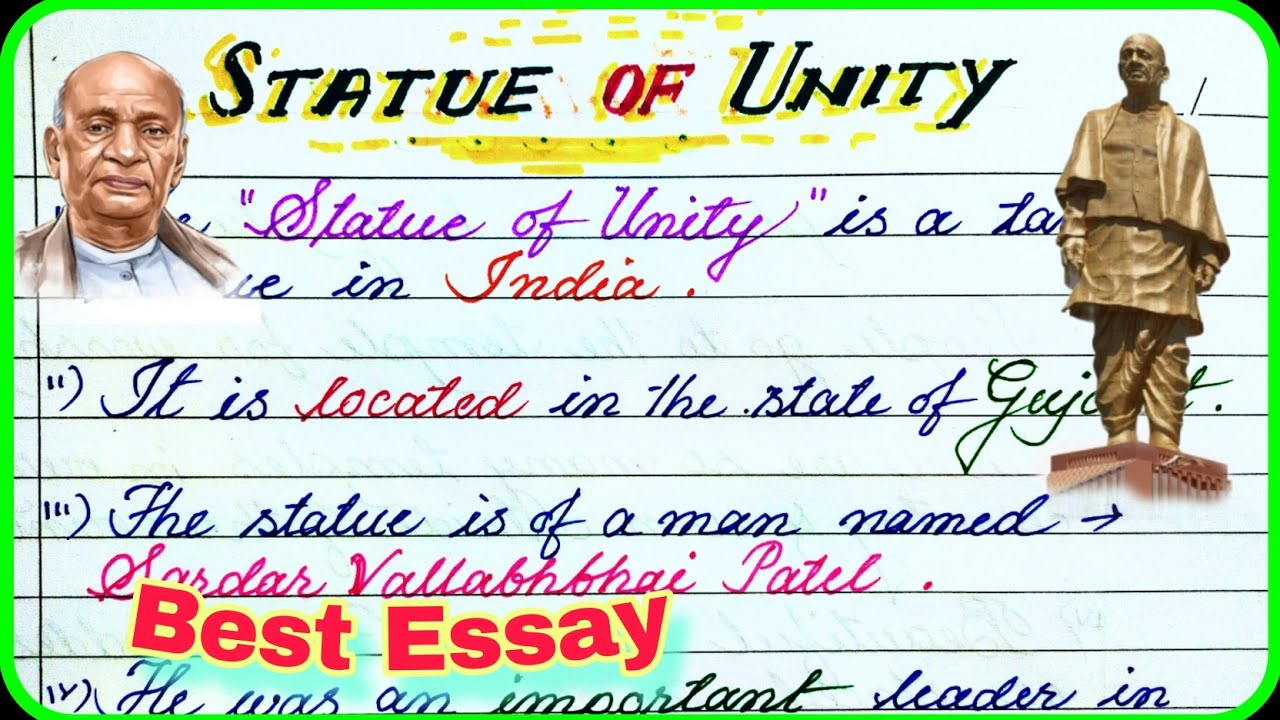 STATUE OF UNITY
"Statue of Unity" is a
in India.
ii) It is located in the state of Gujarat.
iii) The statue is of a man named →
Sardar Vallabhbhai Patel.
Best Essay
iv) He was an important leader in